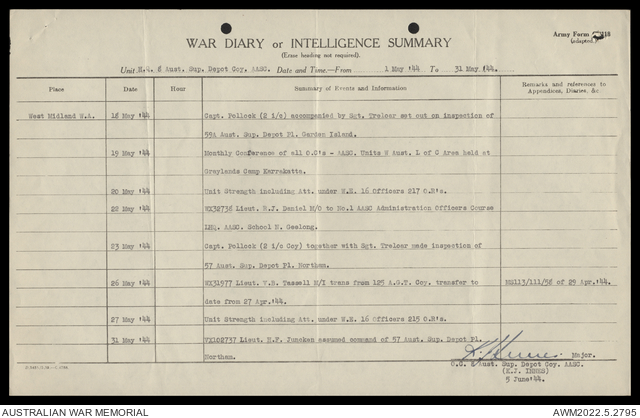 WAR DIARY or INTELLIGENCE SUMMARY
(Erase heading not required).
Army Form
(adapted.)
Unit H.Q. 8 Aust. Sup. Depot Coy. AASC. Date and Time.—From 1 May '44 To 31 May '44.
Place Date Hour Summary of Events and Information Remarks and references to Appendices, Diaries, &c
West Midland W.A. 18 May '44 Capt. Pollock (2 i/c) accompanied by Sgt. Treloar set out on inspection of
59A Aust. Sup. Depot Pl. Garden Island.
19 May '44 Monthly Conference of all O.C's - AASC. Units W Aust. L of C Area held at
Graylands Camp Karrakatta.
20 May '44 Unit Strength including Att. under W.E. 16 Officers 217 O.R's.
22 May '44 WX32736 Lieut. W.J. Daniel M/O to No.1 AASC Administration Officers Course
LHQ. AASC. School N. Geelong.
23 May '44 Capt. Pollock (2 i/c Coy) together with Sgt. Treloar made inspection of
57 Aust. Sup. Depot Pl. Northam.
26 May '44 WX31977 Lieut. V.B. Tassell M/I trans from 125 A.G.T. Coy. transfer to MS113/111/58 of 29 Apr. '44.
date from 27 Apr. '44.
27 May '44 Unit Strength including Att. under W.E. 16 Officers 215 O.R's.
31 May '44 VX102737 Lieut. H.F. Juncken assumed command of 57 Aust. Sup. Depot Pl.
Northam.
Major.
O.C. 8 Aust. Sup. Depot Coy. AASC.
(K.J. INNES)
5 June '44.
AUSTRALIAN WAR MEMORIAL
AWM2022.5.2795